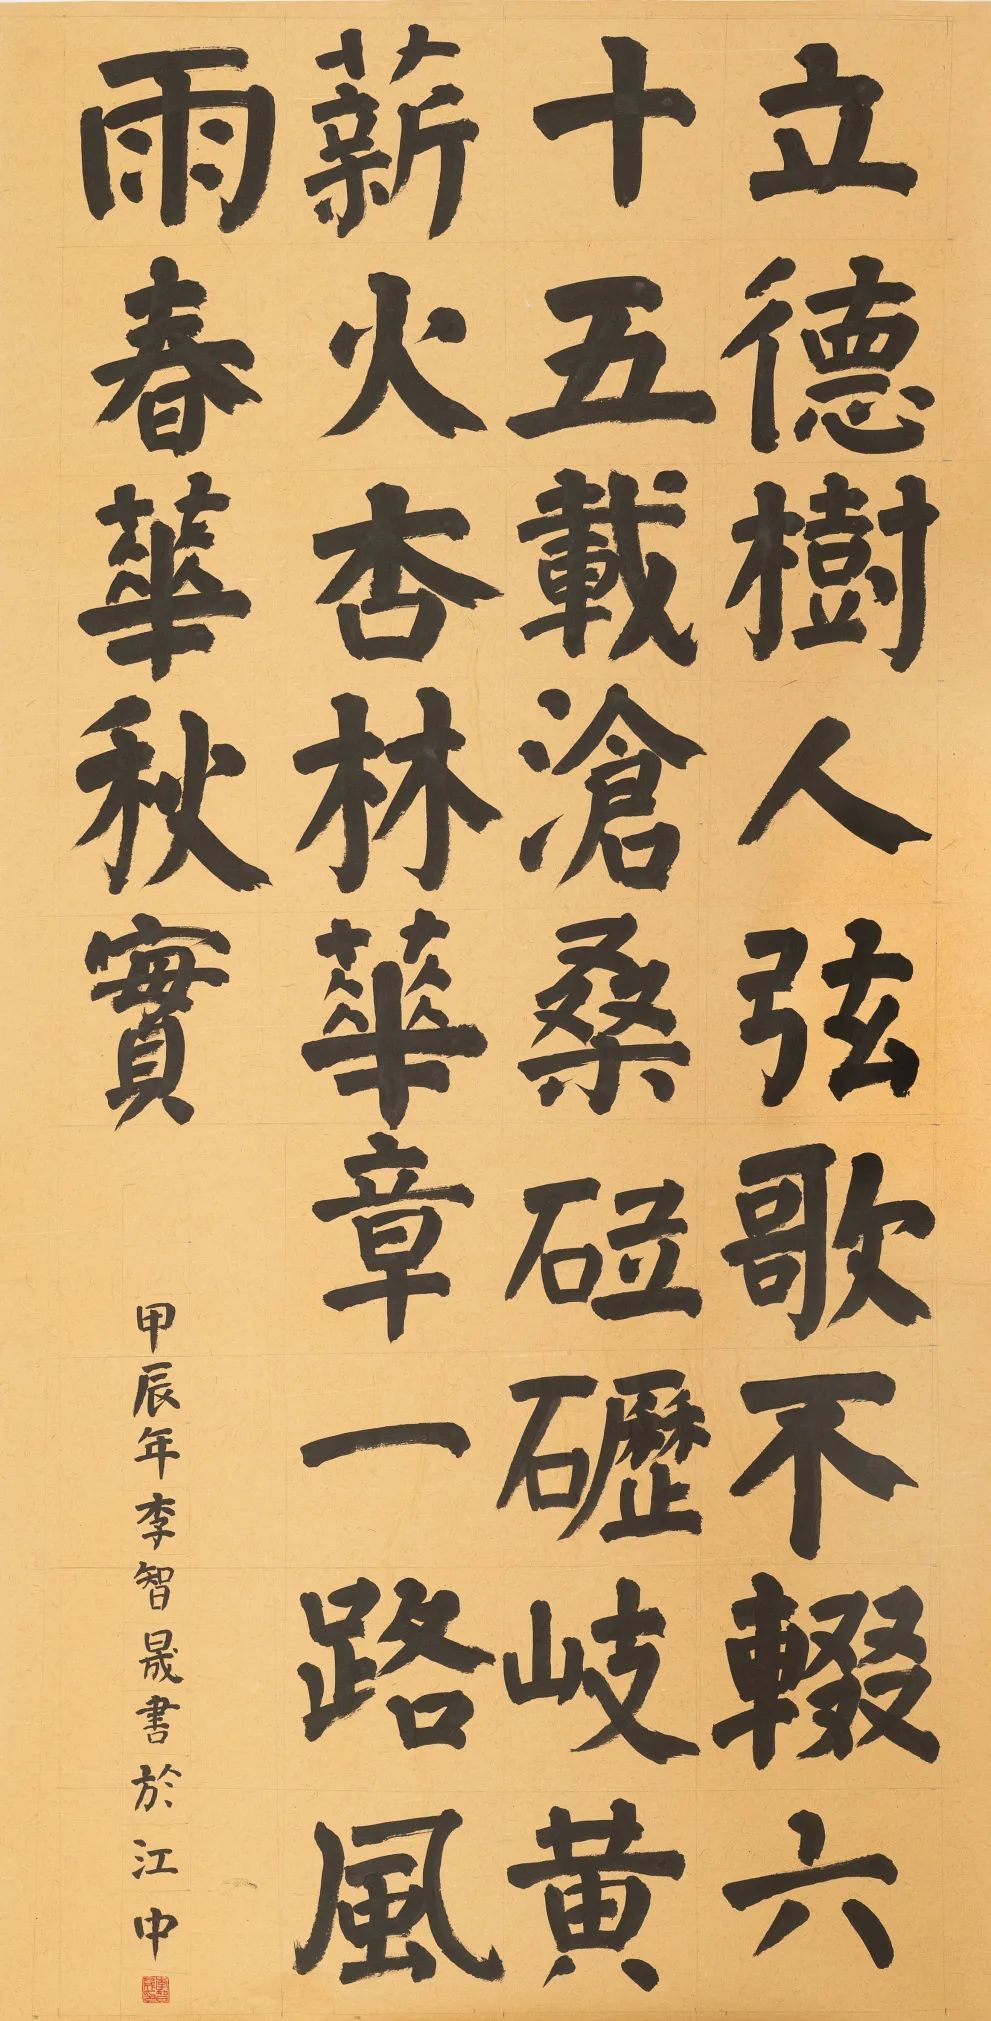 立德樹人弦歌不輟六
十五載滄桑碰礰岐黄
薪火杏林華章一路風
雨春華秋實
甲辰年李智晟書於江中